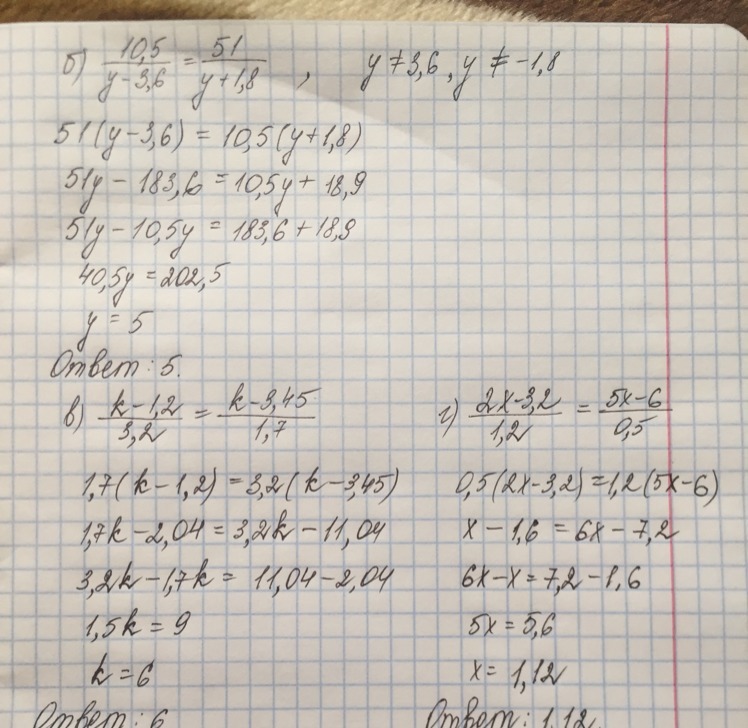 б) 10,5/(y-3,6) = 51/(y+1,8) , y ≠ 3,6, y ≠ -1,8
51(y-3,6) = 10,5(y+1,8)
51y - 183,6 = 10,5y + 18,9
51y - 10,5y = 183,6 + 18,9
40,5y = 202,5
y = 5
Ответ: 5.
в) (k-1,2)/3,2 = (k-3,45)/1,7
1,7(k-1,2) = 3,2(k-3,45)
1,7k - 2,04 = 3,2k - 11,04
3,2k - 1,7k = 11,04 - 2,04
1,5k = 9
k = 6
Ответ: 6
г) (2x-3,2)/1,2 = (5x-6)/0,5
0,5(2x-3,2) = 1,2(5x-6)
x - 1,6 = 6x - 7,2
6x - x = 7,2 - 1,6
5x = 5,6
x = 1,12
Ответ: 1,12.